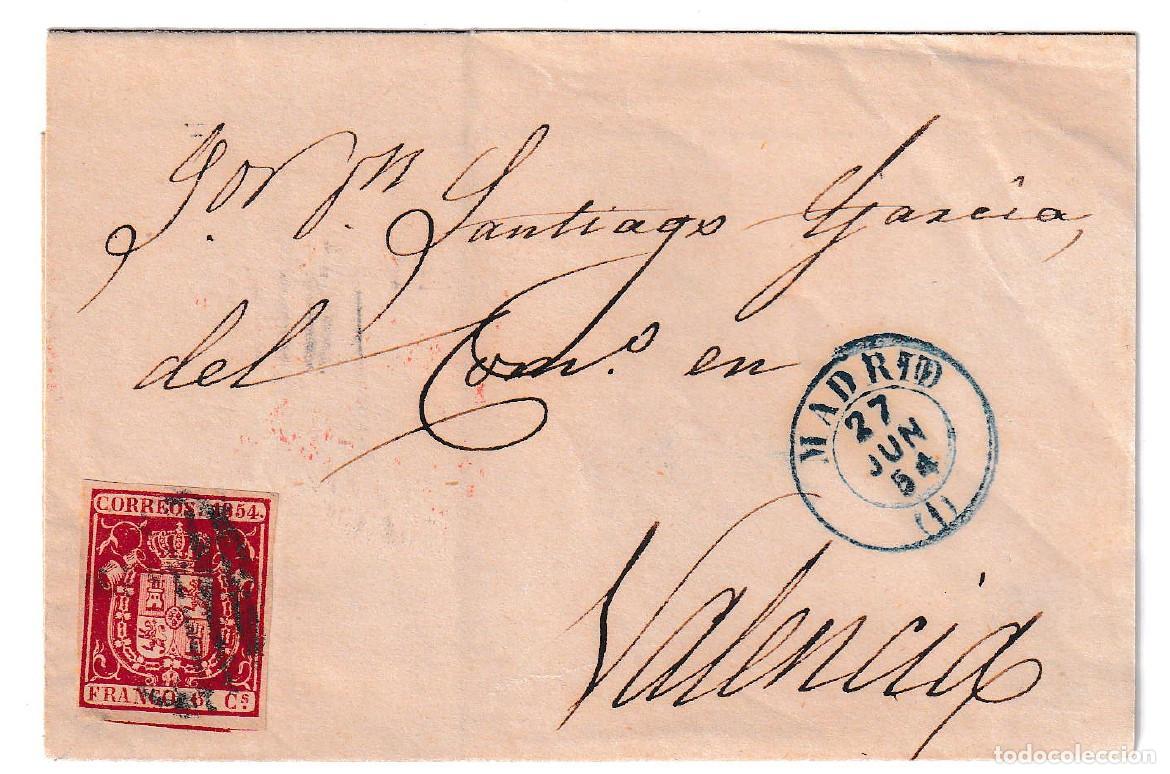 Sor Dn Santiago Garcia,
del Como en
MADRID
27
JUN
54
(1)
Valencia
CORREOS 1854.
FRANCO 6 Cs
todocoleccion